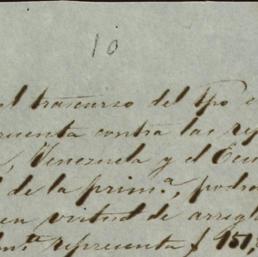 10
el trascurso del tpo
cuenta contra las
, Venezuela y el Ecu
de la prim.ª, podra
en virtud de arregl
representa $ 151,